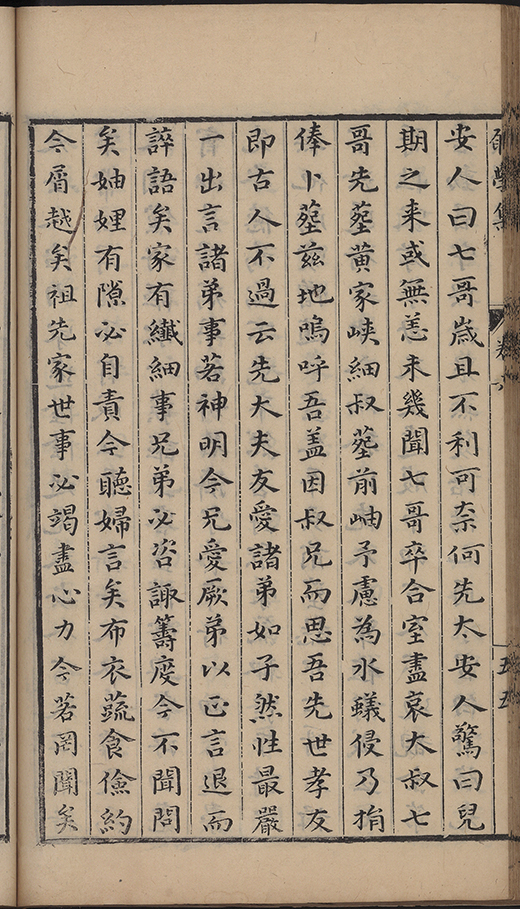 學集
卷六
五五
安人曰七哥歲且不利可奈何先太安人驚曰兒
期之來或無恙未幾聞七哥卒合室盡哀大叔七
哥先塟黄家峽細叔塟前岫予慮為水蟻侵乃捐
俸卜塟兹地嗚呼吾盖因叔兄而思吾先世孝友
即古人不過云先大夫友愛諸弟如子然性最嚴
一出言諸弟事若神明今兄愛厥弟以正言退而
誶語矣家有纎細事兄弟必咨諏籌度今不聞問
矣妯娌有隙必自責今聽婦言矣布衣蔬食儉約
今屑越矣祖先家世事必竭盡心力今若罔聞矣